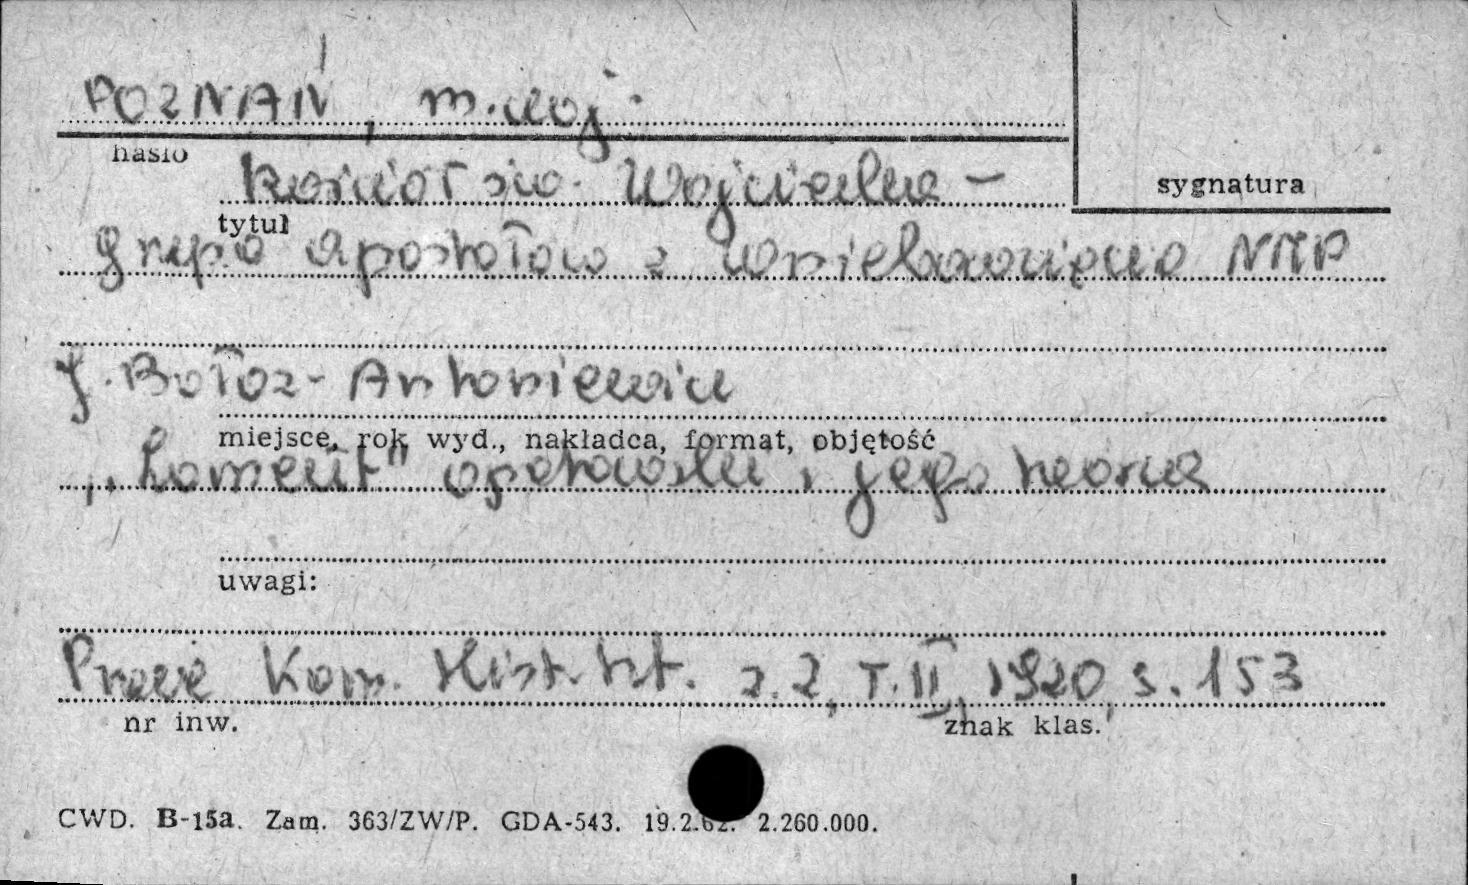 POZNAŃ, m. woj.
hasło
Kościół św. Wojciecha –
sygnatura
tytuł
grupa apostołów z Wniebowzięcia NMP
J. Bołoz-Antoniewicz
miejsce, rok wyd., nakładca, format, objętość
„Lament" opatowski i jego
uwagi:
Prace Kom. Hist. Szt. z. 2, T. II, 1920 s. 153
nr inw.
znak klas.
CWD. B-15a. Zam. 363/ZW/P. GDA-543. 19.2.62. 2.260.000.